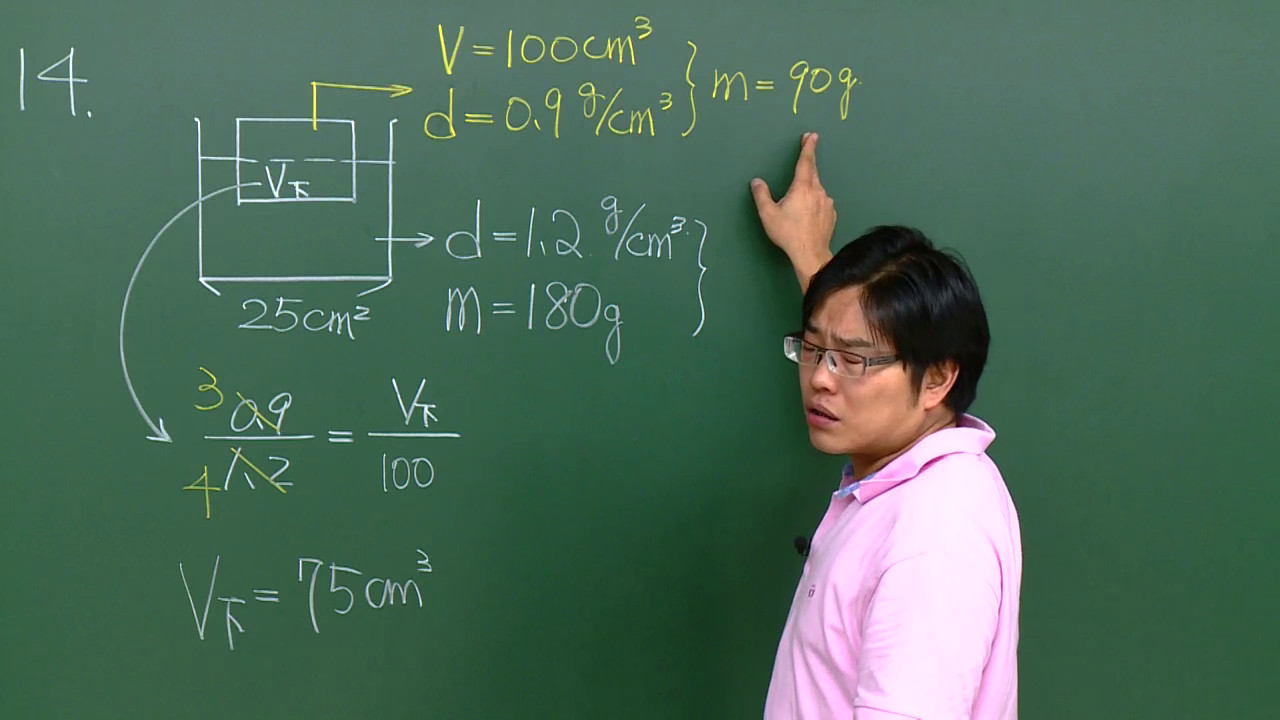 14.
V = 100cm³
d = 0.9 g/cm³ } m = 90g.
V下
d = 1.2 g/cm³
m = 180g }
25cm²
3 4
0.9/1.2 = V下/100
V下 = 75cm³